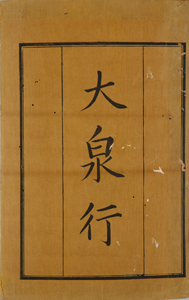 大泉行